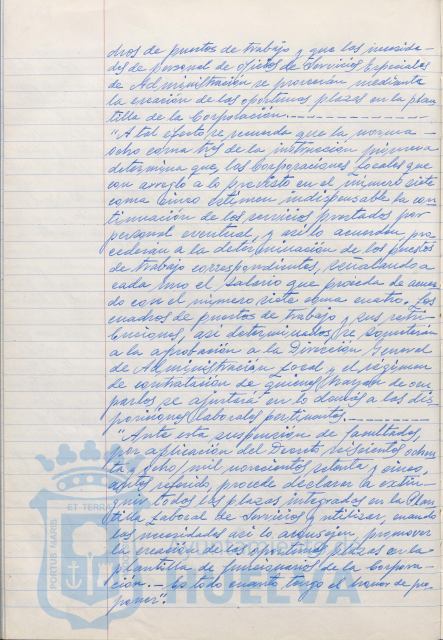 dros de puestos de trabajo y que las necesida-
des de personal de oficios de Servicios Especiales
de Administración se proveerán mediante
la creación de las oportunas plazas en la plan
tilla de la Corporación.
"A tal efecto, se recuerda que la norma
ocho coma tres de la instrucción primera
determina que, las Corporaciones Locales que
con arreglo a lo previsto en el número siete
coma cinco estimen indispensable la con
tinuación de los servicios prestados por
personal eventual, y así lo acuerden, pro
cederán a la determinación de los puestos
de trabajo correspondientes, señalando a
cada uno el salario que proceda de acuer
do con el número siete coma cuatro. Los
cuadros de puestos de trabajo y sus retri
buciones, así determinados, se someterán
a la aprobación a la Dirección General
de Administración Local y el régimen
de contratación de quienes hayan de ocu
parlos se ajustará en lo demás a las dis
posiciones laborales pertinentes.
"Ante esta suspensión de facultades,
por aplicación del Decreto seiscientos ochen
ta y ocho, mil novecientos setenta y cinco,
antes referido, procede declarar a extin
guir, todas las plazas integradas en la Plan
tilla Laboral de Servicios y utilizar, cuando
las necesidades así lo aconsejen, promover
la creación de las oportunas plazas en la
plantilla de funcionarios de la Corpora-
ción.- Es todo cuanto tengo el honor de pro
poner".
PORTUS MARIS
ET TERRAE
HUELVA